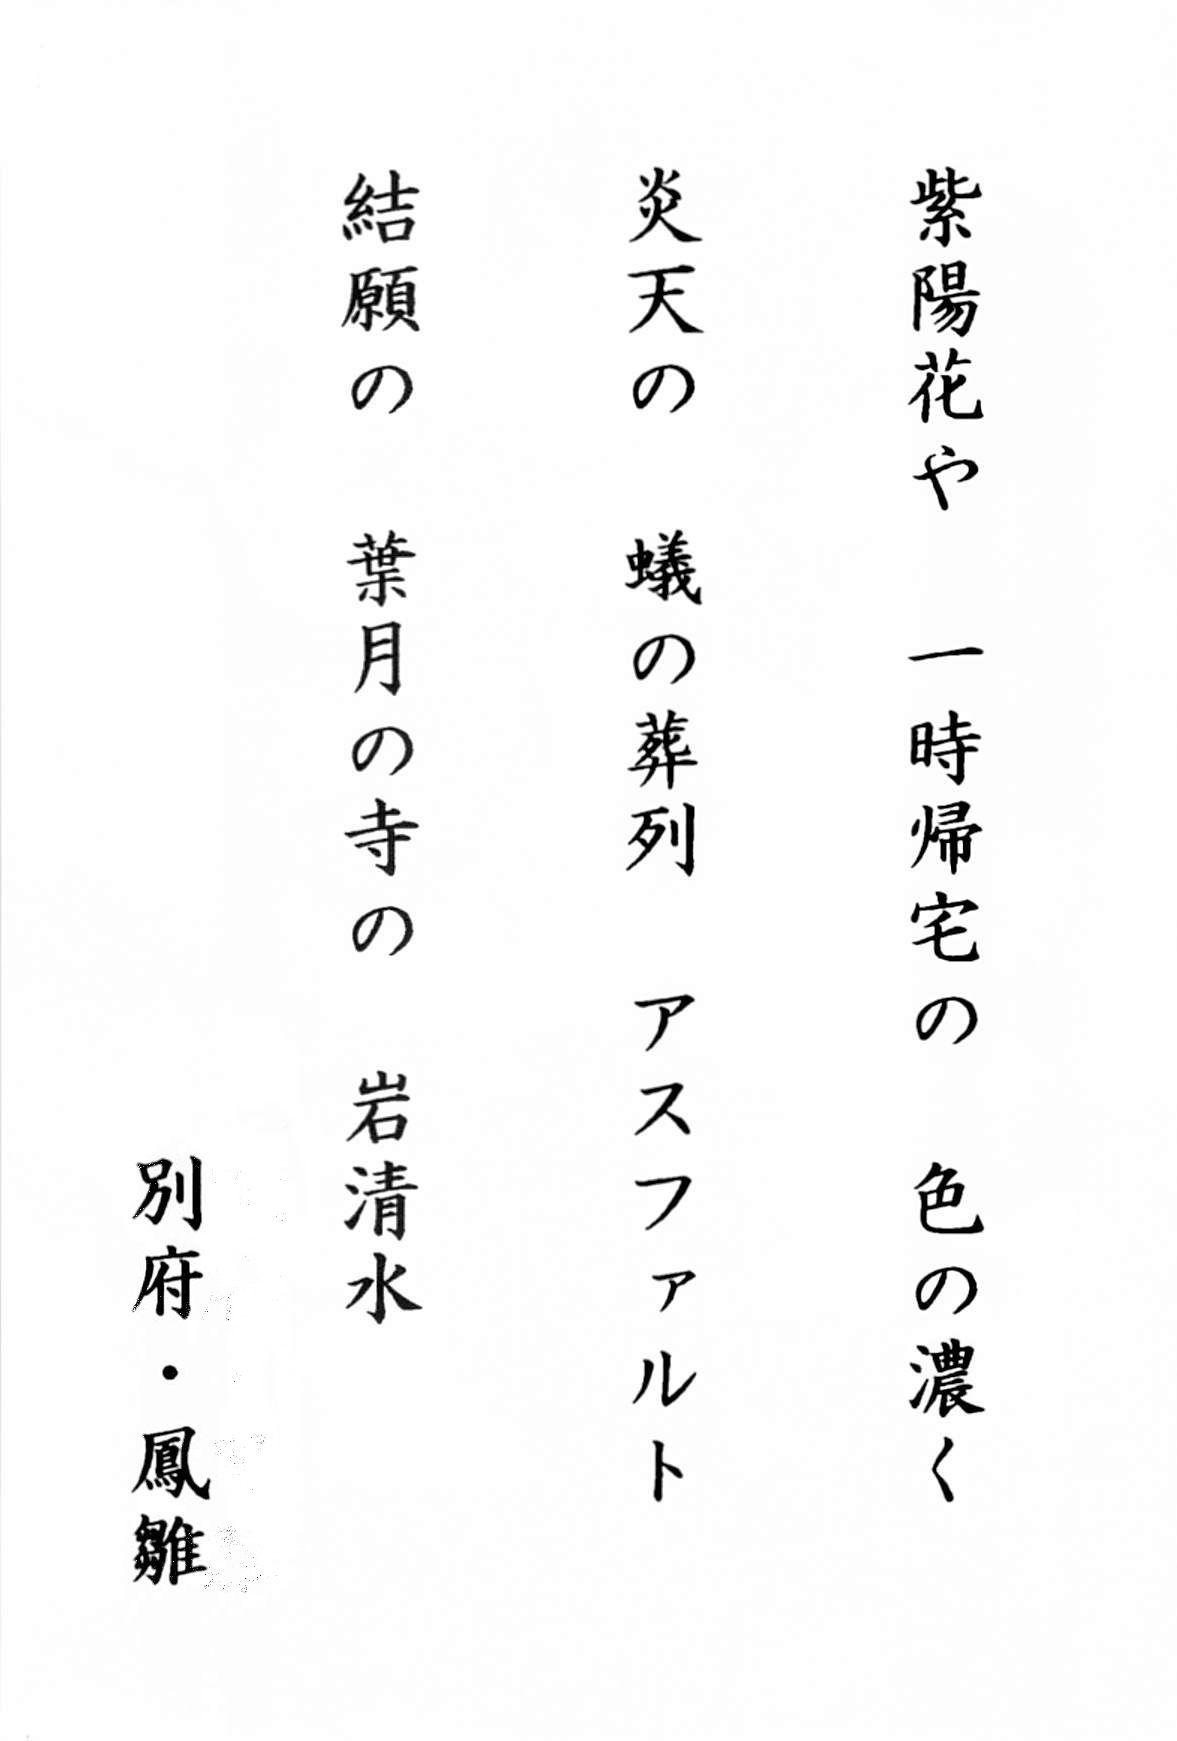 紫陽花や　一時帰宅の　色の濃く
炎天の　蟻の葬列　アスファルト
結願の　葉月の寺の　岩清水
別府・鳳雛